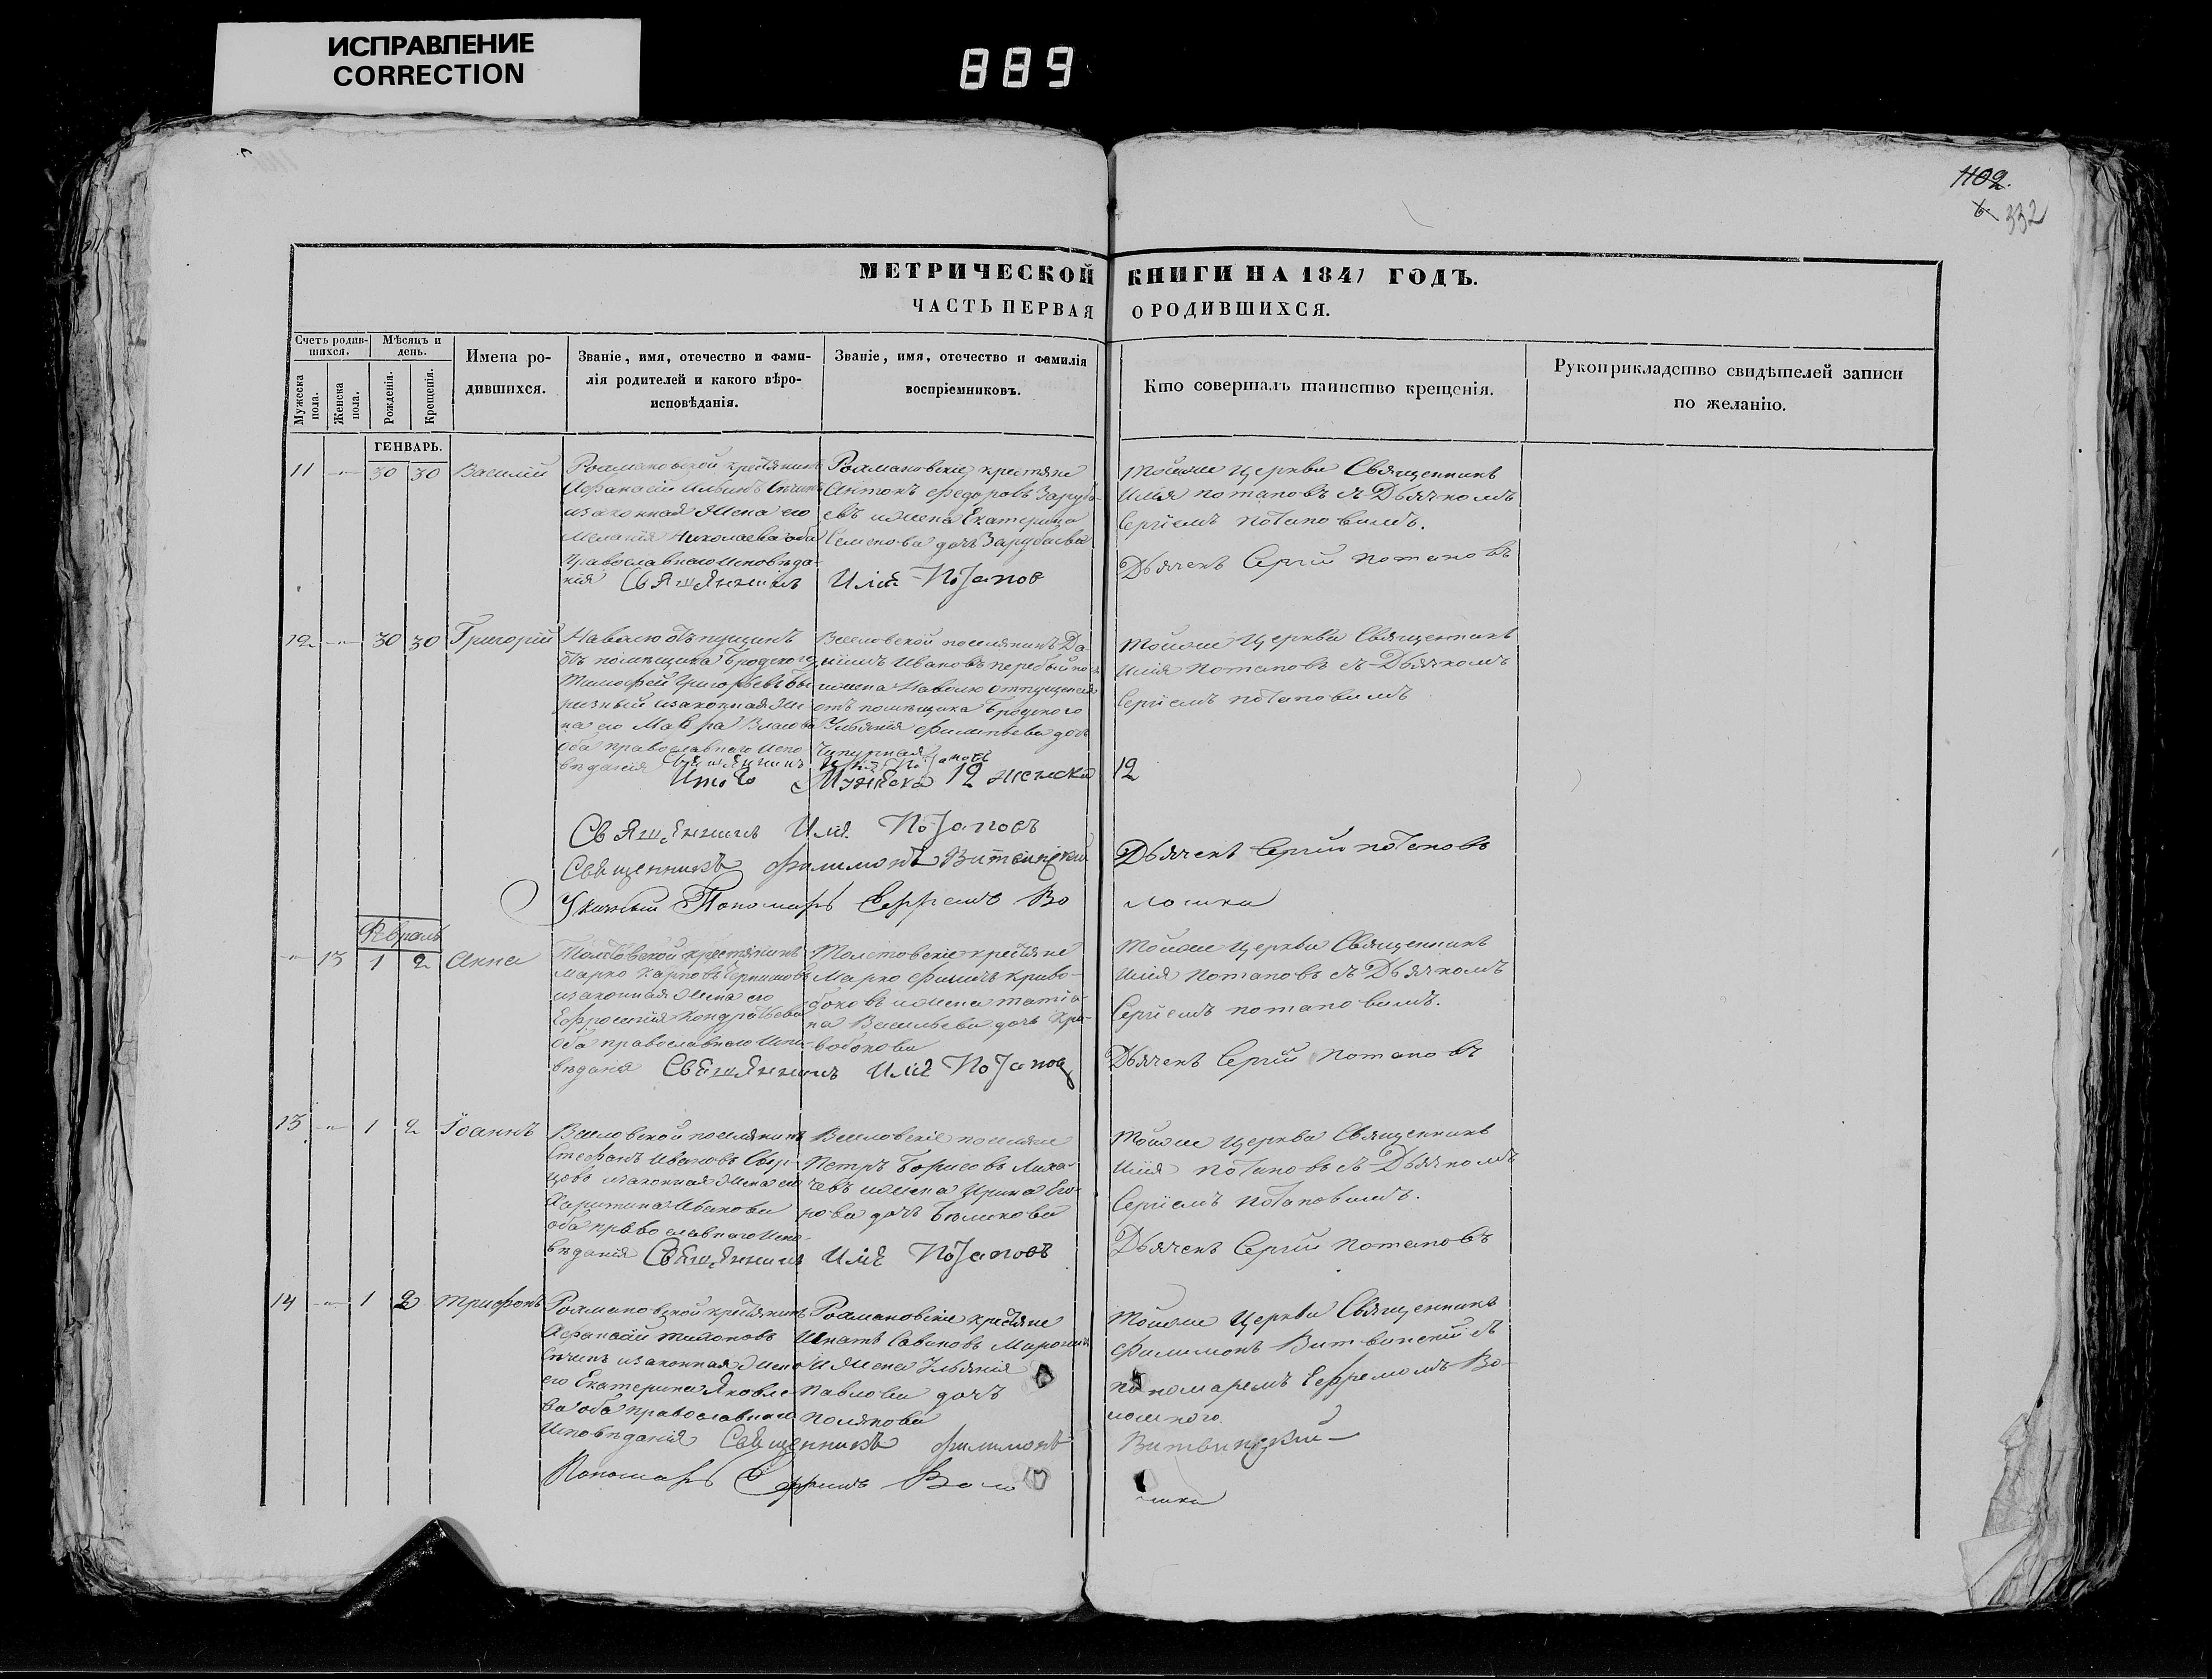 ИСПРАВЛЕНИЕ
CORRECTION
889
1102.
6.
332
МЕТРИЧЕСКОЙ КНИГИ НА 1841 ГОДЪ.
ЧАСТЬ ПЕРВАЯ О РОДИВШИХСЯ.
Счетъ родив-
шихся.
Мѣсяцъ и
день.
Мужеска
пола.
Женска
пола.
Рожденія.
Крещенія.
Имена ро-
дившихся.
Званіе, имя, отечество и фами-
лія родителей и какого вѣро-
исповѣданія.
Званіе, имя, отечество и фамилія
воспріемниковъ.
Кто совершалъ таинство крещенія.
Рукоприкладство свидѣтелей записи
по желанію.
ГЕНВАРЬ.
11 — 30 30 Василій
крестянинъ
Афанасій Ильинъ
изаконная жена его
Меланія Николаева оба
православнаго исповѣда-
нія Священникъ Илія Потапов
крестяне
Антонъ Федоровъ Заруба-
евъ ижена Екатерина
Семенова дочъ Зарубаева
тойже Церкви Священникъ
Илія Потаповъ съ Дьячкомъ
Сергіемъ Потаповимъ.
Дьячекъ Сергій Потаповъ
12 — 30 30 Григорій
Наволю отъпущинъ
отъ помѣщика Бродского
Тимофей Григорьевъ
изаконная же-
на его Мавра Власова
оба православнаго испо-
вѣданія Священникъ Илія Потаповъ
поселянинъ Да-
ніилъ Ивановъ
ижена Наволю отпущеная
отъ помѣщика Бродского
Ульянія Филипьева дочъ
Итого Мужеска 12 женска 12
тойже Церкви Священникъ
Илія Потаповъ съ Дьячкомъ
Сергіемъ Потаповимъ
Священникъ Илія Потаповъ
Священникъ Филимонъ Витвицкій
Дьячекъ Сергій Потаповъ
Указный Пономарь Ефремъ Волошка
Февраль
— 13 1 2 Анна
крестянинъ
Марко Карповъ
изаконная жена его
Ефросинія Кондратьева
оба православнаго испо-
вѣданія Священникъ Илія Потапов
Толстовскіе крестяне
Марко Криво-
боковъ ижена Татіа-
на Васильева дочъ Кри-
вобокова
тойже Церкви Священникъ
Илія Потаповъ съ Дьячкомъ
Сергіемъ Потаповимъ.
Дьячекъ Сергій Потаповъ
13 — 1 2 Іоаннъ
поселянинъ
Стефанъ Ивановъ
изаконная жена его
Харитина Иванова
оба православнаго испо-
вѣданія Священникъ Илія Потаповъ
поселяне
Петръ Борисовъ Лиха-
чевъ ижена Ирина Его-
рова дочъ
тойже Церкви Священникъ
Илія Потаповъ съ Дьячкомъ
Сергіемъ Потаповимъ.
Дьячекъ Сергій Потаповъ
14 — 1 2 Трифонъ
крестянинъ
Афанасій
изаконная жена
его Екатерина Яковле-
ва оба православнаго
исповѣданія Священникъ Филимонъ Витвицкій
крестяне
Игнатъ Савиновъ
ижена Ульянія
Павлова дочъ
Полякова
тойже Церкви Священникъ
Филимонъ Витвицкій съ
пономаремъ Ефремомъ Во-
Пономарь Ефремъ Волошка